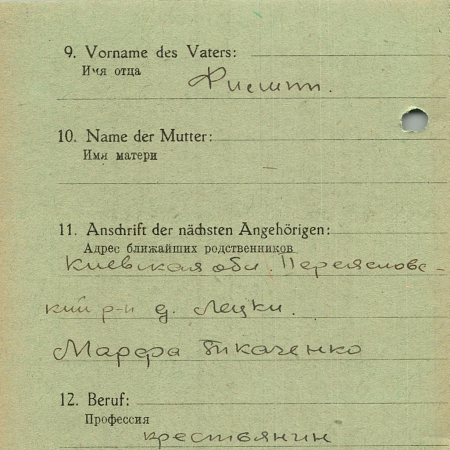 9. Vorname des Vaters:
Имя отца
Филипп.
10. Name der Mutter:
Имя матери
11. Anschrift der nächsten Angehörigen:
Адрес ближайших родственников
Киевская обл. Переяславс-
кий р-н д. Лецки.
Марфа Ткаченко
12. Beruf:
Профессия
крестьянин